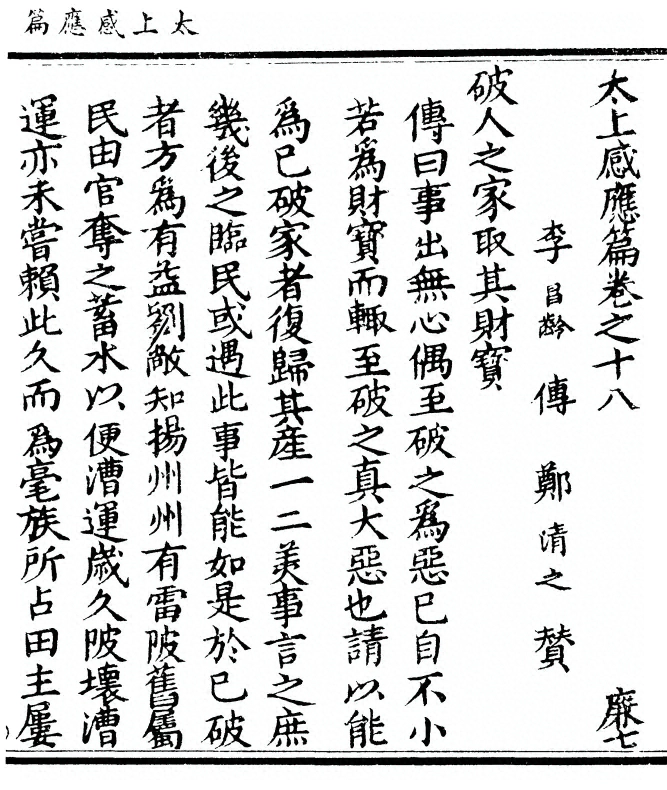 太上感應篇
太上感應篇卷之十八 廉七
李昌齡傳 鄭清之贊
破人之家取其財寶
傳曰事出無心偶至破之爲惡已自不小
若爲財寶而輙至破之真大惡也請以能
爲已破家者復歸其産一二美事言之庶
幾後之臨民或遇此事皆能如是於已破
者方爲有益劉敞知揚州州有雷陂舊屬
民由官奪之蓄水以便漕運歲久陂壞漕
運亦未嘗賴此久而爲毫族所占田主屢